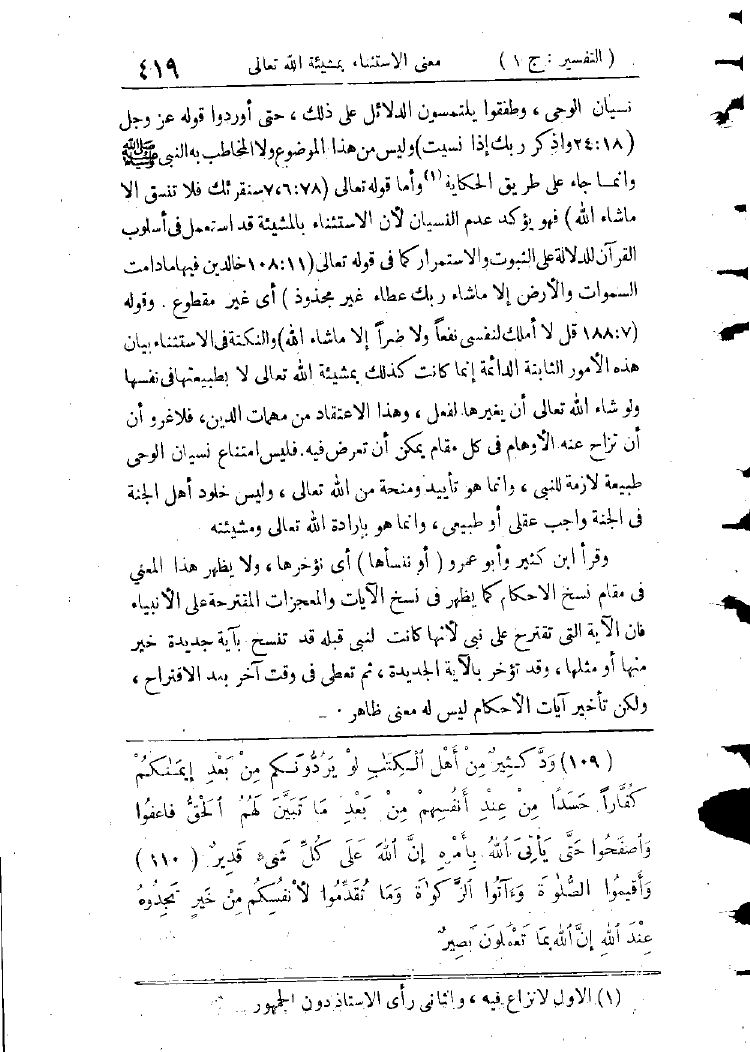 ( التفسير : ج ١ ) معنى الاستثناء بمشيئة الله تعالى ٤١٩
نسيان الوحى ، وطفقوا يلتمسون الدلائل على ذلك ، حتى أوردوا قوله عز وجل
( ٢٤:١٨ واذكر ربك إذا نسيت) وليس من هذا الموضوع ولا المخاطب به النبي ﷺ
وانما جاء على طريق الحكاية (١) وأما قوله تعالى (٧،٦:٧٨ سنقرئك فلا تنسى الا
ماشاء الله ) فهو يؤكد عدم النسيان لأن الاستثناء بالمشيئة قد استعمل فى أسلوب
القرآن للدلالة على الثبوت والاستمرار كما فى قوله تعالى (١٠٨:١١ خالدين فيها مادامت
السموات والأرض إلا ماشاء ربك عطاء غير مجذوذ ) أى غير مقطوع . وقوله
(١٨٨:٧ قل لا أملك لنفسى نفعاً ولا ضراً إلا ماشاء الله) والنكتة فى الاستثناء بيان
هذه الأمور الثابتة الدائمة إنما كانت كذلك بمشيئة الله تعالى لا بطبيعتها فى نفسها
ولو شاء الله تعالى أن يغيرها لفعل ، وهذا الاعتقاد من مهمات الدين، فلا غرو أن
أن تزاح عنه الأوهام فى كل مقام يمكن أن تعرض فيه. فليس امتناع نسيان الوحى
طبيعة لازمة للنبي ، وانما هو تأييد ومنحة من الله تعالى ، وليس خلود أهل الجنة
فى الجنة واجب عقلى أو طبيعى ، وانما هو بإرادة الله تعالى ومشيئته
وقرأ ابن كثير وأبو عمرو ( أو ننسأها ) أى نؤخرها ، ولا يظهر هذا المعنى
فى مقام نسخ الاحكام كما يظهر فى نسخ الآيات والمعجزات المقترحة على الأنبياء
فان الآية التى تقترح على نبى لأنها كانت لنبي قبله قد تنسخ بآية جديدة خير
منها أو مثلها ، وقد تؤخر بالآية الجديدة ، ثم تعطى فى وقت آخر بعد الاقتراح ،
ولكن تأخير آيات الأحكام ليس له معنى ظاهر .
( ١٠٩ ) وَدَّ كَثِيرٌ مِنْ أَهْلِ الْكِتَٰبِ لَوْ يَرُدُّونَكُم مِنْ بَعْدِ إِيمَٰنِكُمْ
كُفَّاراً حَسَدًا مِنْ عِنْدِ أَنْفُسِهِمْ مِنْ بَعْدِ مَا تَبَيَّنَ لَهُمُ الْحَقُّ فَاعْفُوا
وَاصْفَحُوا حَتَّى يَأْتِيَ اللهُ بِأَمْرِهِ إِنَّ اللهَ عَلَى كُلِّ شَىْءٍ قَدِيرٌ ( ١١٠ )
وَأَقِيمُوا الصَّلَوٰةَ وَءَاتُوا الزَّكَوٰةَ وَمَا تُقَدِّمُوا لأَنْفُسِكُم مِنْ خَيْرٍ تَجِدُوهُ
عِنْدَ اللهِ إِنَّ اللهَ بِمَا تَعْمَلُونَ بَصِيرٌ
(١) الاول لا نزاع فيه ، والثانى رأى الاستاذ دون الجمهور